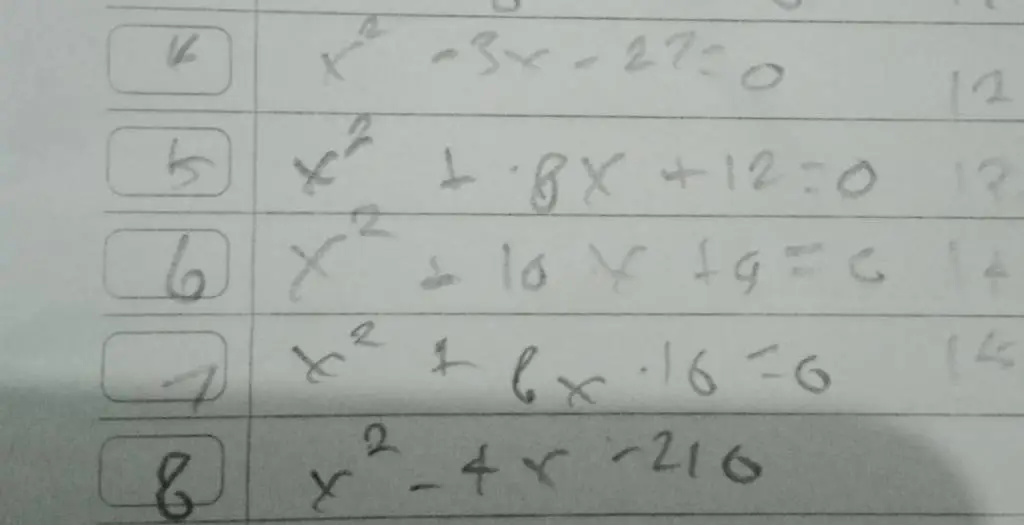 4 x² - 3x - 27 = 0 12
5 x² + 8x + 12 = 0
6 x² + 10x + 9 = 0 14
7 x² + 6x - 16 = 0 15
8 x² - 4x - 210